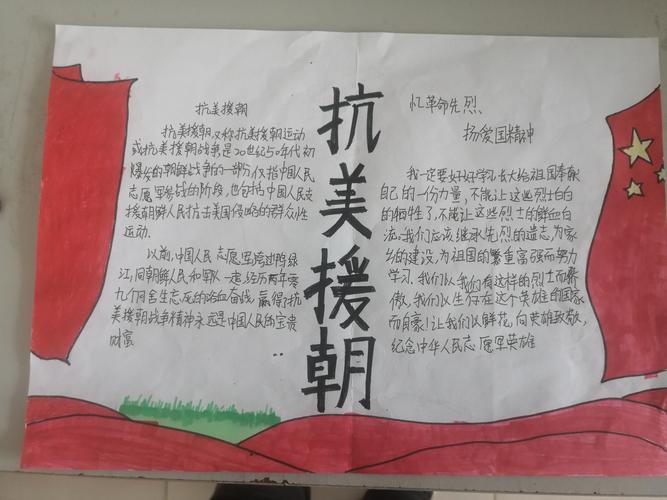 抗美援朝
抗美援朝又称抗美援朝运动
或抗美援朝战争是20世纪50年代初
爆发的朝鲜战争的一部分仅指中国人民
志愿军参战的阶段,也包括中国人民支
援朝鲜人民抗击美国侵略的群众性
运动.
以前,中国人民志愿军跨过鸭绿
江,同朝鲜人民和军队一起,经历两年零
九个月舍生忘死的浴血奋战,赢得了抗
美援朝战争精神永远是中国人民的宝贵
财富
抗美援朝
忆革命先烈、
扬爱国精神
我一定要好好学习,长大给祖国奉献
自己的一份力量,不能让这些烈士白白
的牺牲了,不能让这些烈士的鲜血白
流.我们应该继承先烈的遗志,为家
乡的建设,为祖国的繁重富强而努力
学习.我们以我们有这样的烈士而骄
傲,我们以生存在这个英雄的国家
而自豪!让我们以鲜花,向英雄致敬,
纪念中华人民志愿军英雄